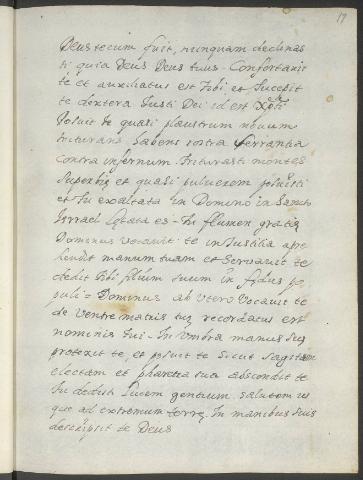 17
Deus tecum fuit, nunquam declinas
ti quia Deus Deus tuus. Confortavit
te et auxiliatus est tibi et suscepit
te dextera Iusti Dei id est Xpti
Posuit te quasi plaustrum novum
triturans habens rostra serrantia
contra infernum. triturasti montes
superbiæ et quasi pulverem posuisti
et tu exaltata in Domino in Sancto
Israel lætata es. Tu flumen gratiæ
Dominus vocavit te in Iustitia apre
hendit manum tuam et servavit te
dedit tibi filium suum in fædus po
puli = Dominus ab utero vocavit te
de ventre matris tuæ recordatus est
nominis tui. In umbra manus suæ
protexit te, et posuit te sicut sagittam
electam et pharetra sua abscondit te
tu dedisti lucem gentium salutem us
que ad extremum terræ. In manibus suis
descripsit te Deus